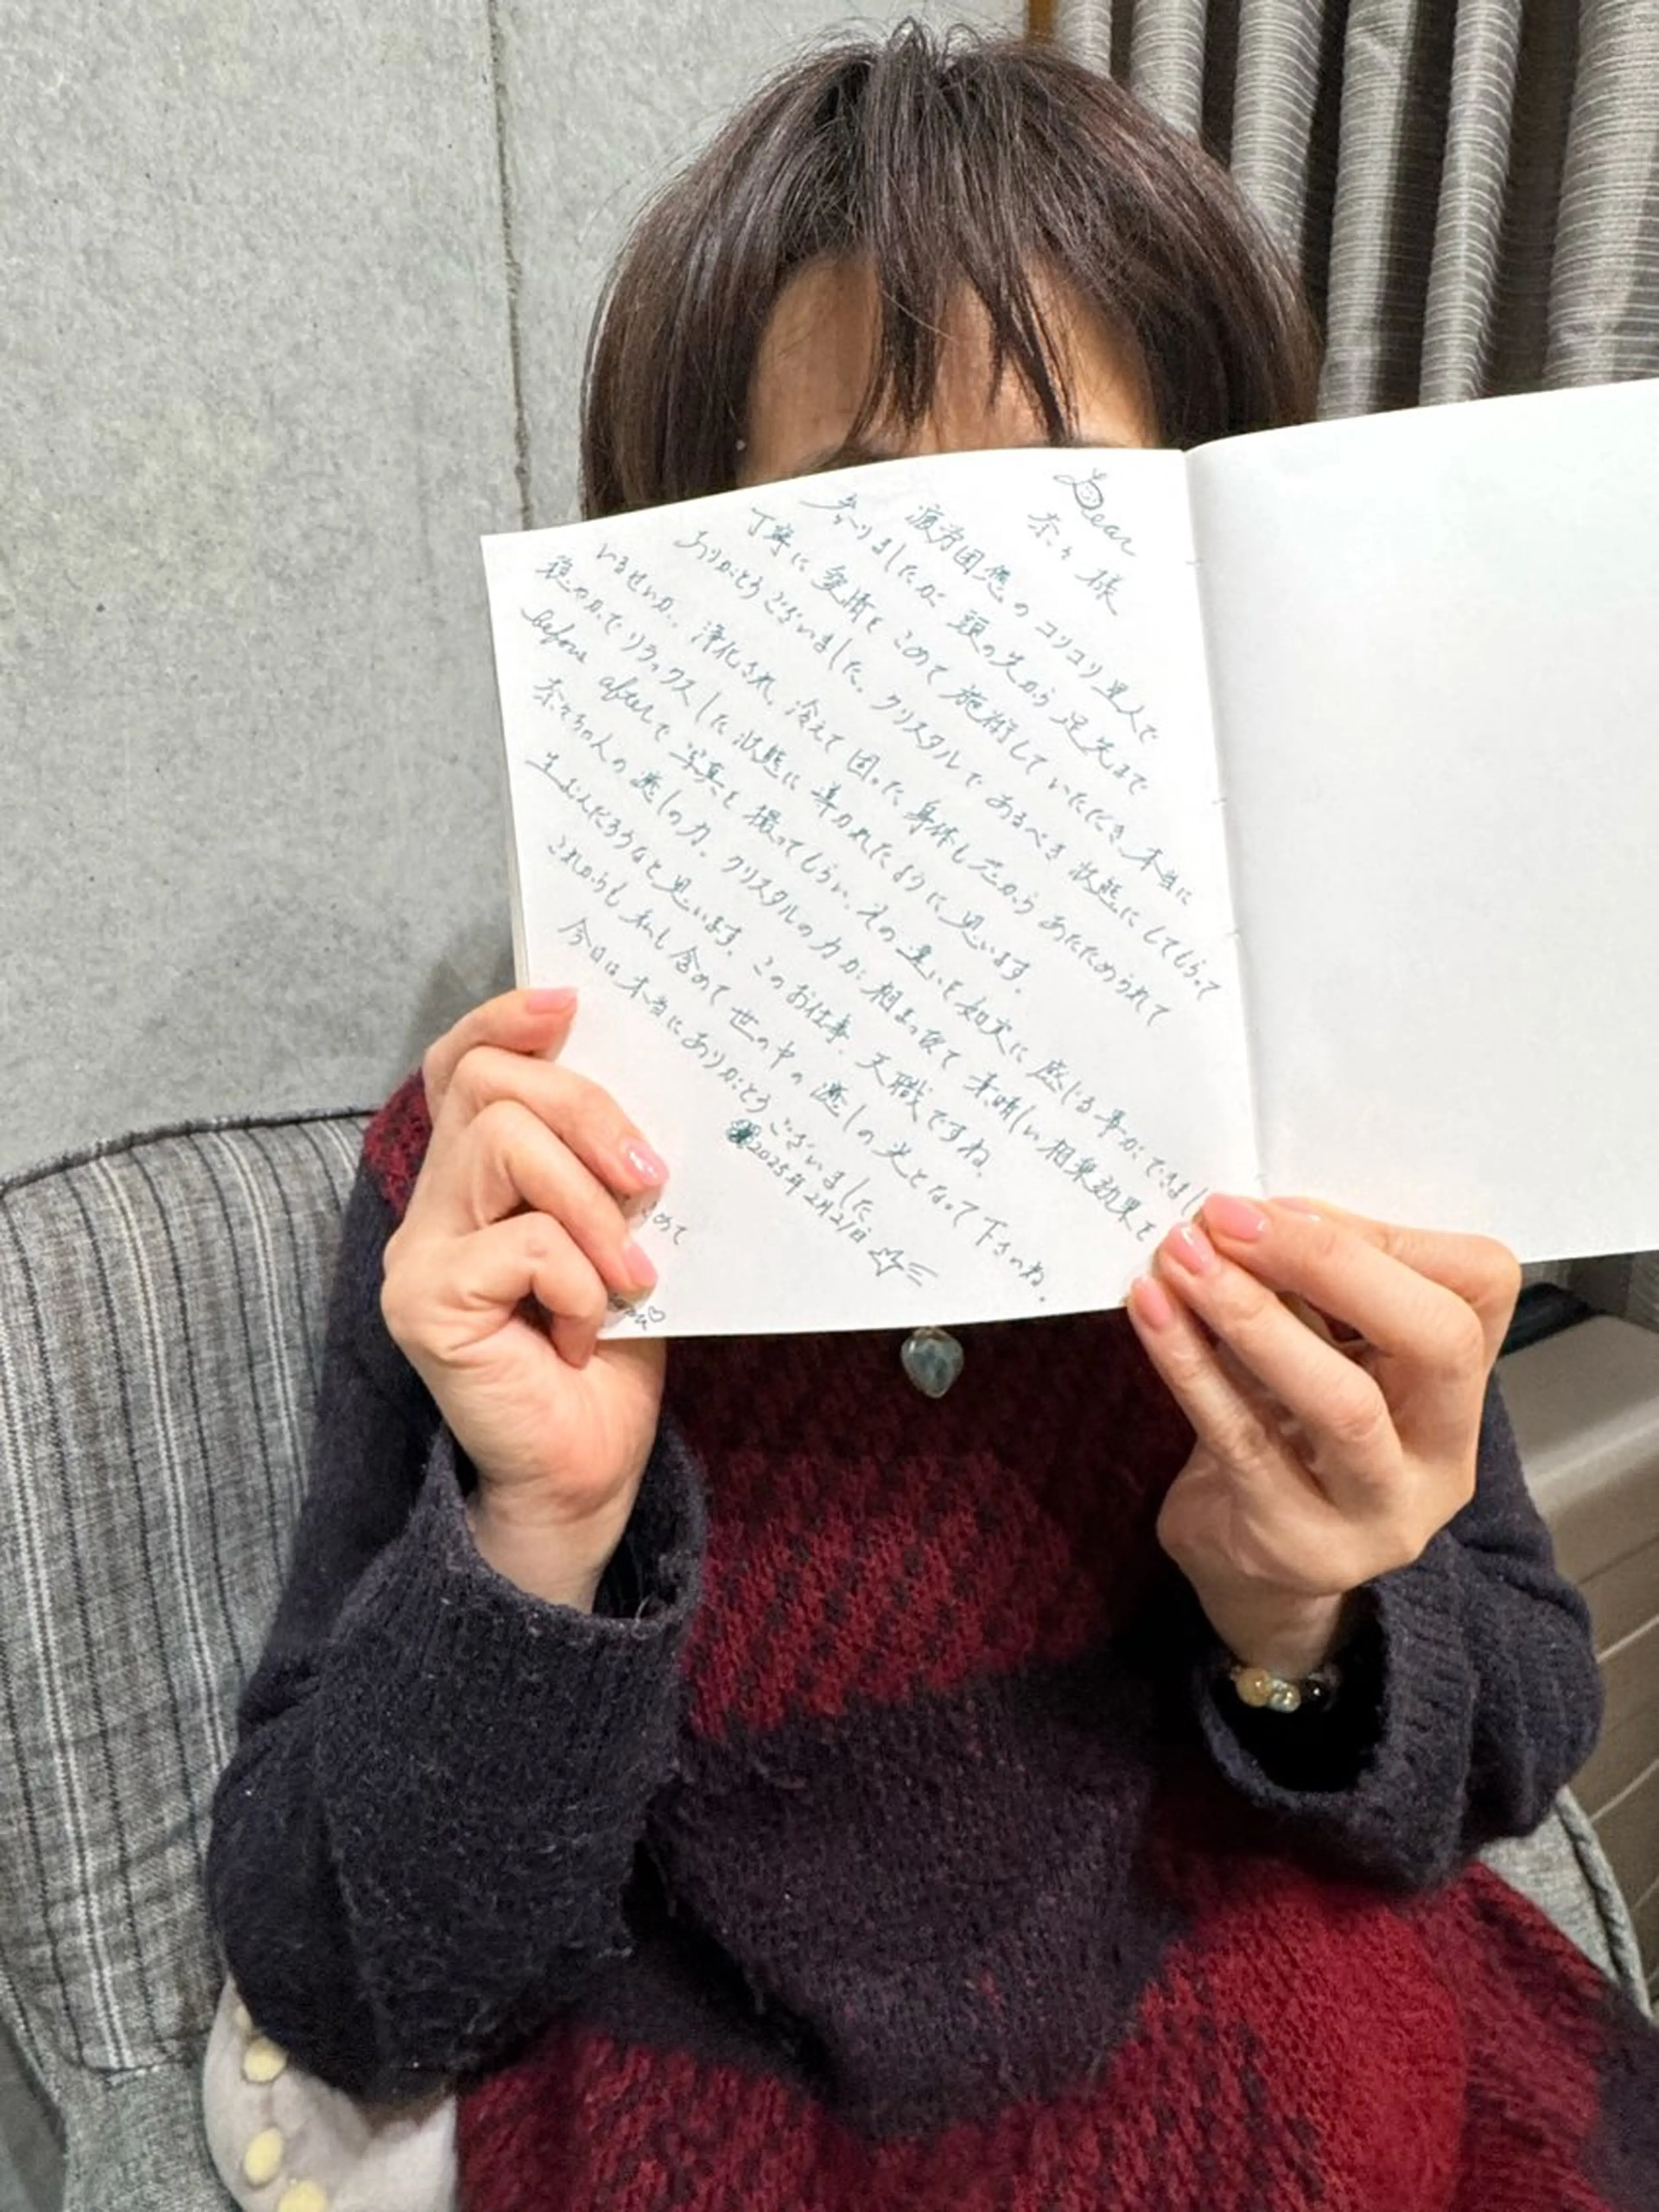 Dear
奈々様
疲労困憊のコリコリ星人で
参りましたが 頭の先から 足先まで
丁寧に 愛情を こめて 施術して いただき 本当に
ありがとう ございました。クリスタルで あるべき 状態に してもらって
いるせいか、浄化され、冷えて 固った 身体も 芯から あたためられて
穏やかで リラックスした 状態に 導かれたように 思います。
before afterで 写真を 撮ってもらい、その 違いを 如実に 感じる 事が できまし
奈々ちゃんの 癒しの力、クリスタルの 力が 相まって 素晴しい 相乗効果を
生ぶんだろうなと 思います。このお仕事、天職ですね
これからも 私も 含めて 世の中の 癒しの 光となって 下さいね。
今日は 本当に ありがとう ございました
2025年2月21日
こめて